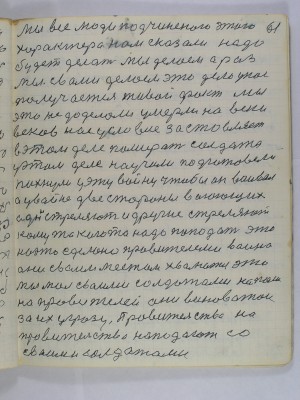 мы все люди подчиненого этого 61
характера нам сказали надо
будет делат мы делаем а раз
мы сами делаем это дело у нас
получается такой факт мы
это не доделали умерли на веки
веков нас условие заставляет
в этом деле помират солдата
в этом деле научили подготовили
пихнули у эту войну чтобы он воивал
а у войне две стороны воюющих
одни стреляют и другие стреляют
кому то кого то надо попадат это
на это сделано правителями война
они своим местом хвалются это
мы мол своими солдатами напали
на правителей они виноваты
за их угрозу. Правительство на
правительство нападают со
своими солдатами